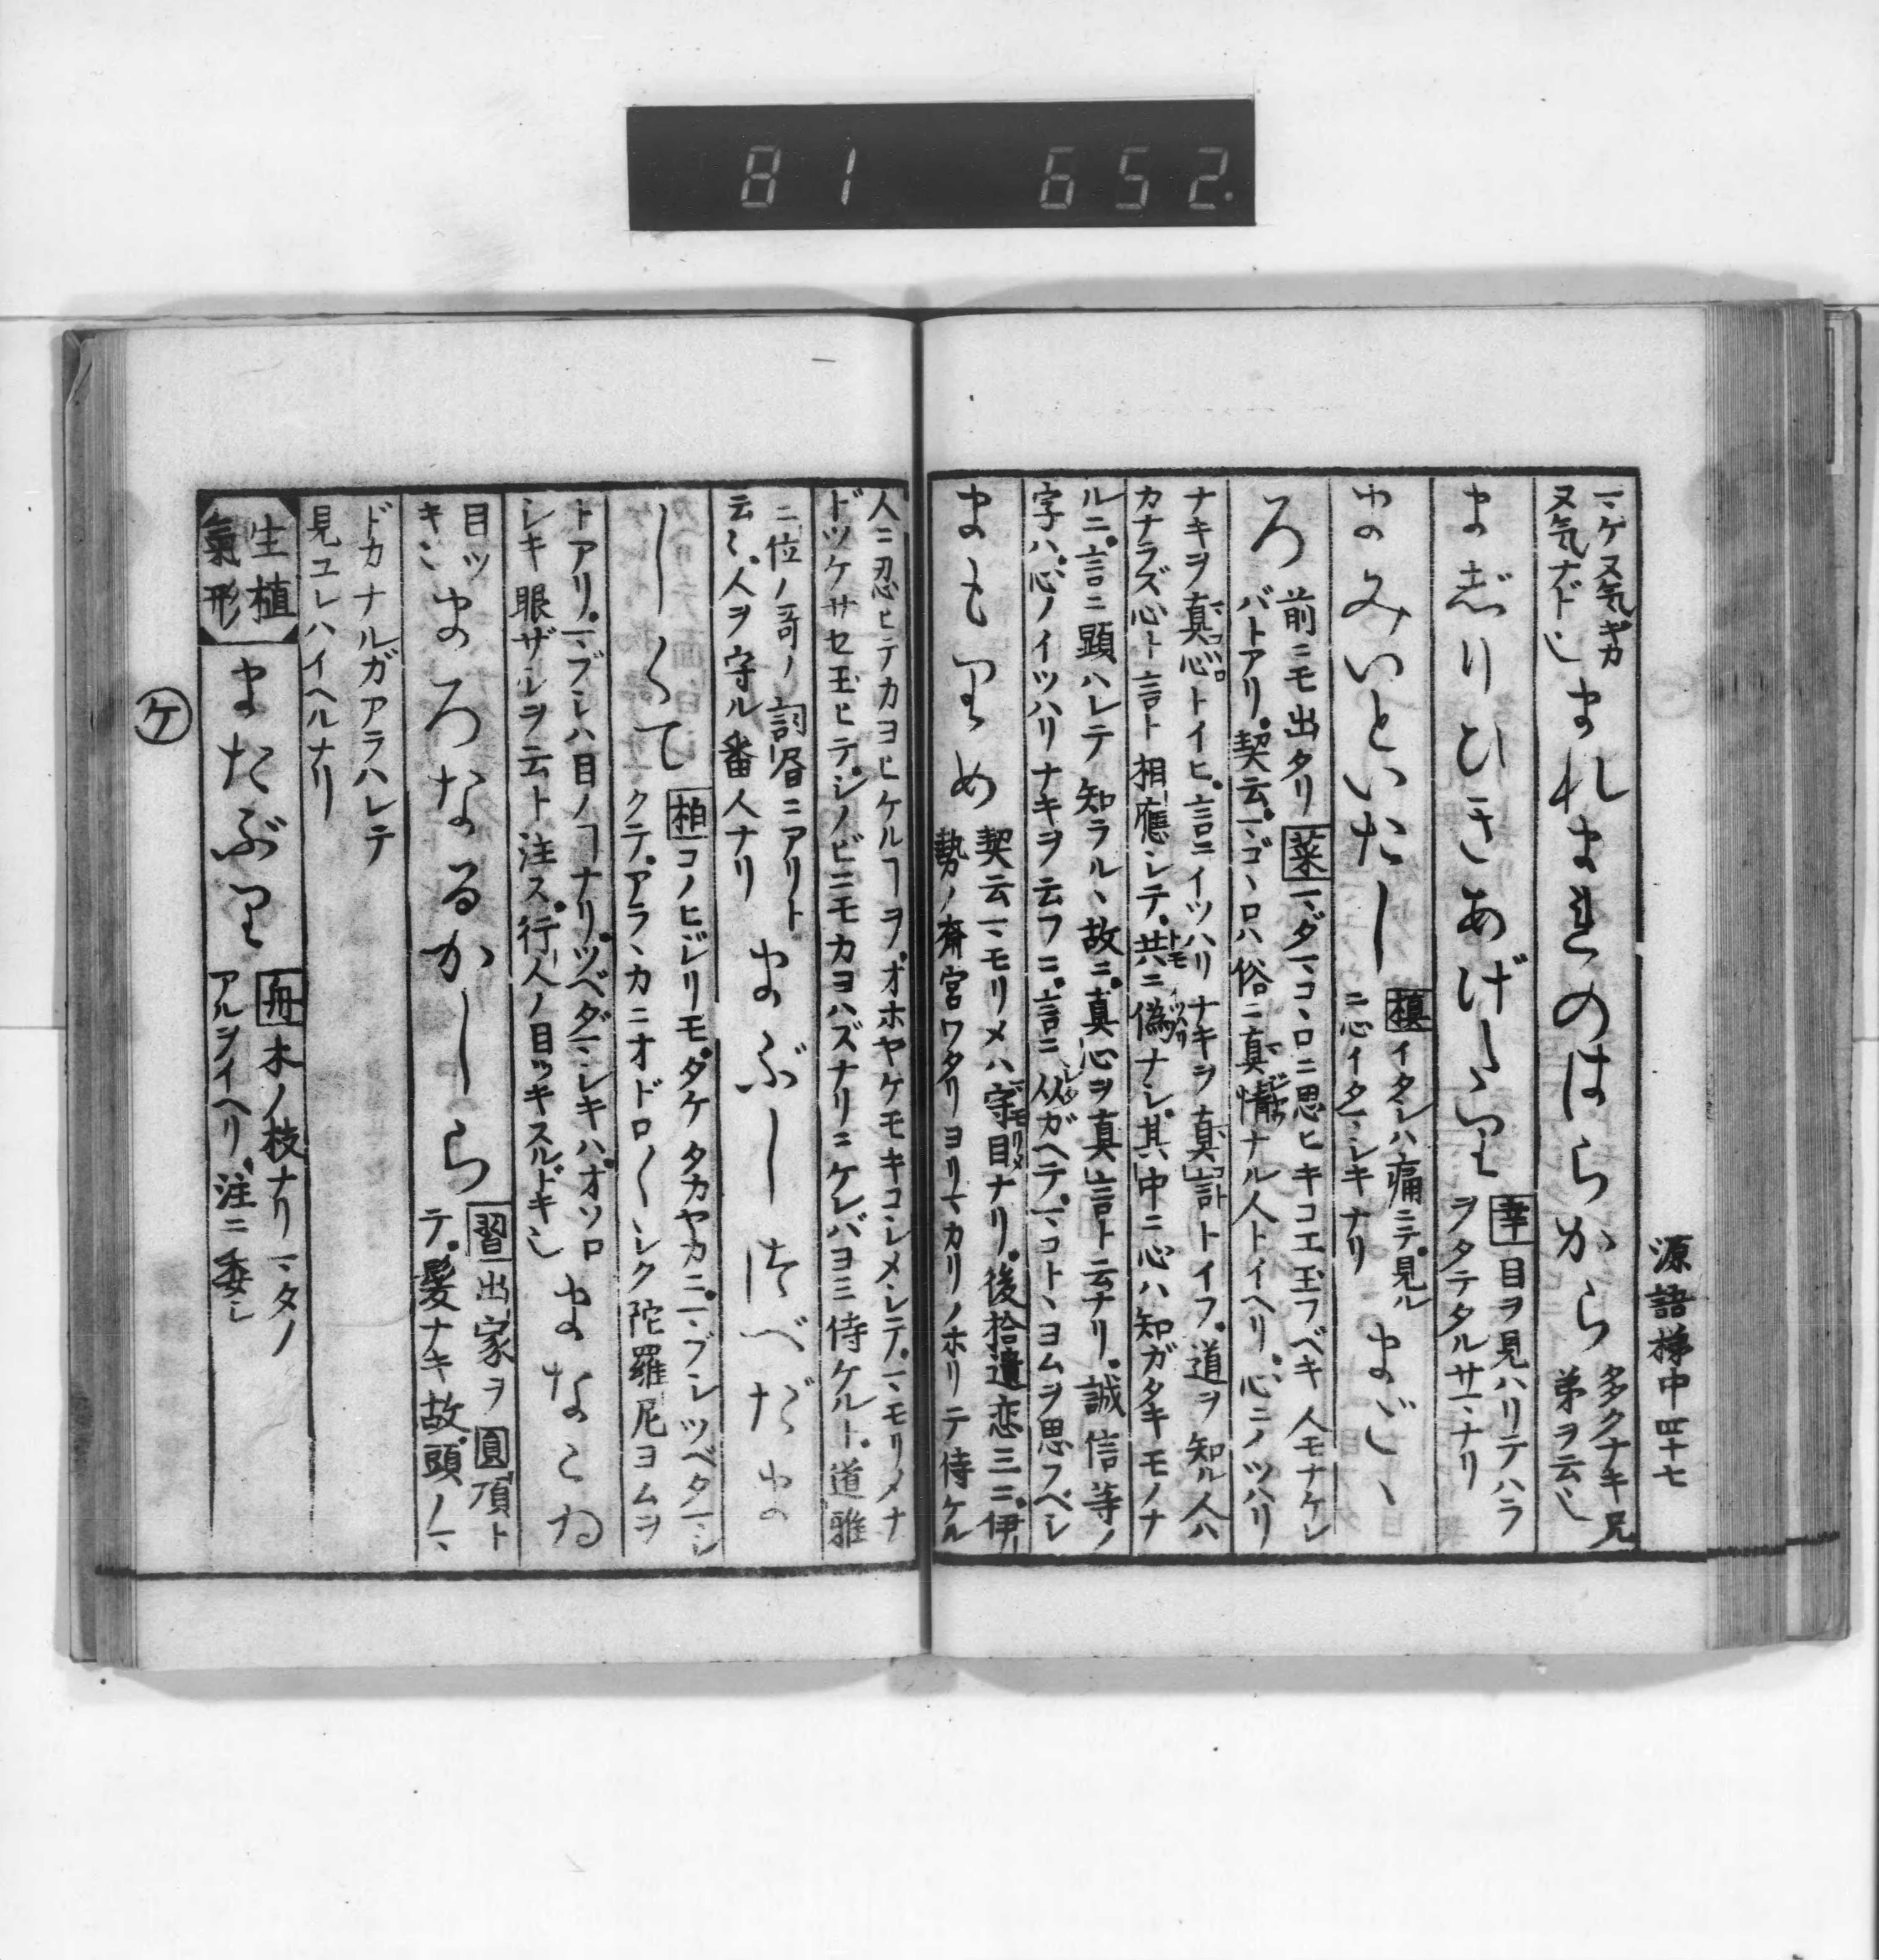 81 652.
源語梯中 四十七
マケヌ気ギカ
ヌ気ナド也
まれまれのはらから
多クナキ兄
弟ヲ云也
まじりひきあげたり
幸 目ヲ見ハリテハラ
ヲタテタルサマナリ
まみいといたし
槙 イタシハ痛ニテ見ル
ニ心イタマシキナリ
まごゝ
ろ
前ニモ出タリ 菜 マダマコヽロニ思ヒキコエ玉フベキ人モナケレ
バトアリ契云マゴヽロハ俗ニ真情ナル人トイヘリ心ニノツハリ
ナキヲ真心トイヒ言ニイツハリナキヲ真言トイフ道ヲ知ル人ハ
カナラズ心ト言ト相應シテ共ニ偽ナシ其中ニ心ハ知ガタキモノナ
ルニ言ニ顕ハレテ知ラルヽ故ニ真心ヲ真言ト云ナリ誠信等ノ
字ハ心ノイツハリナキヲ云フニ言ニ从ガヘテマコトヽヨムヲ思フベシ
まもりめ
契云マモリメハ守目ナリ後拾遺恋三ニ伊
勢ノ斎宮ワタリヨリマカリノホリテ侍ケル
人ニ忍ヒテカヨヒケルヿヲオホヤケモキコシメシテマモリメナ
ドツケサセ玉ヒテシノビニモカヨハズナリニケレバヨミ侍ケルト道雅
三位ノ哥ノ詞書ニアリト
云々人ヲ守ル番人ナリ
まぶしつべたま
しくて
柏 コノヒジリモタケタカヤカニマブシツベタマシ
クテアラヽカニオドロ〱シク陀羅尼ヨムヲ
トアリマブシハ目ノヿナリツベダマシキハオソロ
シキ眼ザシヲ云ト注ス行人ノ目ツキスルドキ也
まなこゐ
目ツ
キ也
まろなるかしら
習 出家ヲ圓頂ト
テ髪ナキ故頭ノマ
ドカナルガアラハレテ
見ユレハイヘルナリ
生植
氣形
またぶり
舟 木ノ枝ナリマタノ
アルヲイヘリ注ニ委シ
ケ